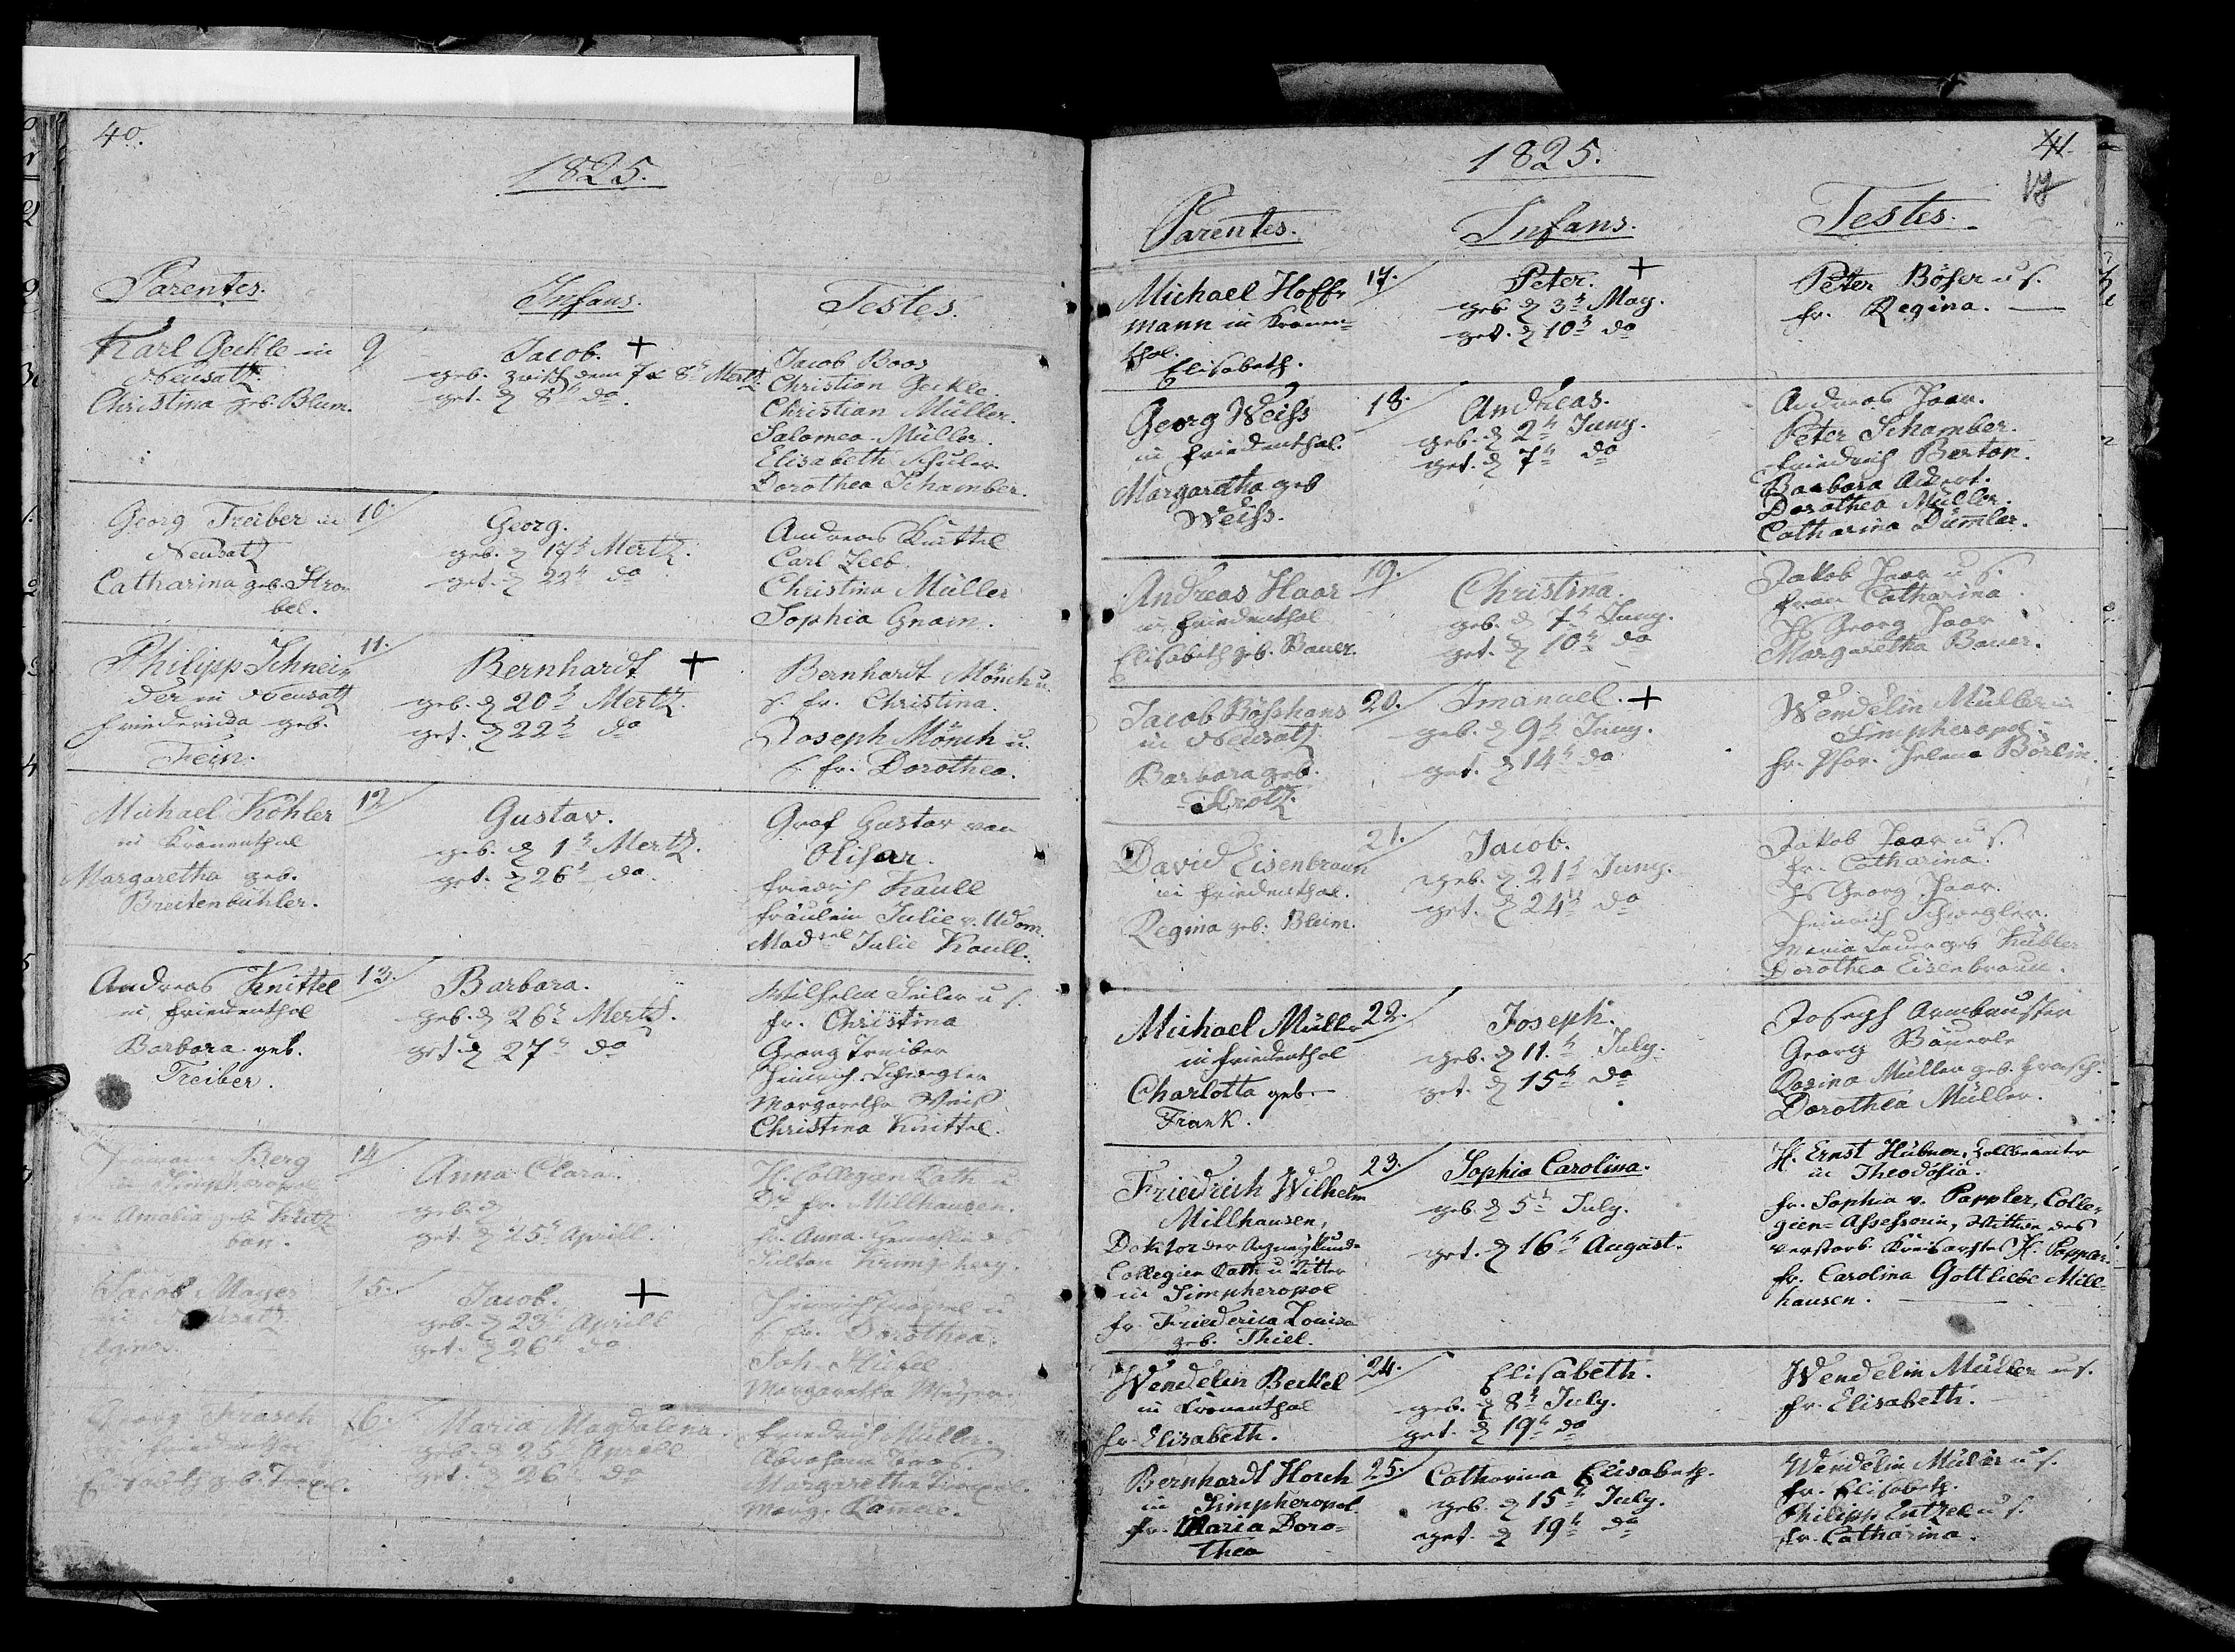 40.
1825.
Parentes. Infans. Testes.
Karl Geckle in
Neusatz.
Christina geb. Blum.
9
Jacob. +
geb. zwisch dem 7 u 8t Mertz.
get. d 8t do.
Jacob Boos
Christian Geckle
Christian Müller.
Salomea Müller.
Elisabeth Schuler
Dorothea Schamber.
Georg Treiber in
Neusatz
Catharina geb. Stro
bel.
10.
Georg.
geb. d 17t Mertz.
get. d 22t do
Andreas Knittel
Carl Zeeb
Christina Müller
Sophia Gnam.
Philipp Schnei
der in Neusatz
Friederica geb.
Fein.
11.
Bernhardt +
geb. d 20t Mertz.
get. d 22t do
Bernhardt Mönch u.
s. fr. Christina.
Joseph Mönch u.
s. fr. Dorothea.
Michael Köhler
in Kronenthal
Margaretha geb.
Breitenbühler.
12
Gustav.
geb. d 1t Mertz.
get. d 26t do.
Graf Gustav von
Olisar.
Friedrich Kaull
Fräulein Julie v. Adom.
Madsel Julie Kaull.
Andreas Knittel
in Friedenthal
Barbara geb.
Treiber.
13.
Barbara.
geb. d 26t Mertz.
get. d 27t do
Wilhelm Seiler u s.
fr. Christina
Georg Treiber
Heinrich Schwegler
Margaretha Weiß
Christina Knittel.
Berg
in Simpheropol
Amalia geb.
14
Anna Clara.
geb. d
get. d 25t Aprill.
H. Collegien Rath u
Dr fr. Millhausen.
fr. Anna
Sultan
Jacob Mayer
in Neusatz
15.
Jacob. +
geb. d 23t Aprill
get. d 26t do
Heinrich u
s. fr. Dorothea.
Joh.
Margaretha Mayer.
Georg Frasch
in Friedenthal
16.
Maria Magdalena.
geb. d 25t Aprill
get. d 26t do
Friedrich Müller.
Abraham
Margaretha
Marg.
41.
17
1825.
Parentes. Infans. Testes.
Michael Hoff
mann in Kronen
thal.
Elisabeth.
17.
Peter. +
geb d 3t May.
get. d 10t do
Peter Böser u s.
fr. Regina.
Georg Weiss
in Friedenthal.
Margaretha geb
Weiss.
18.
Andreas.
geb. d 2t Juny.
get. d 7t do
Andreas Haar.
Peter Schamber.
Friedrich Berton.
Barbara Ackert.
Dorothea Müller.
Catharina Dümler.
Andreas Haar
in Friedenthal
Elisabeth geb. Bauer.
19.
Christina.
geb. d 7t Juny.
get. d 10t do
Jakob Haar u s.
frau Catharina.
Georg Haar
Margaretha Bauer.
Jacob Bösshans
in Neusatz.
Barbara geb.
Krotz.
20.
Imanuel. +
geb. d 9t Juny.
get. d 14t do
Wendelin Müller in
Simpheropol u
fr. Pfar. Helena Börlin.
David Eisenbraun
in Friedenthal.
Regina geb. Bleim.
21.
Jacob.
geb. d 21t Juny.
get. d 24t do
Jakob Haar u s.
fr. Catharina.
Georg Haar.
Heinrich Schwegler.
Maria Bauer geb Kübler
Dorothea Eisenbraun.
Michael Müller
in Friedenthal
Charlotta geb.
Frank.
22.
Joseph.
geb. d 11.t July.
get. d 15t do
Joseph Armbruster
Georg Bäuerle
Rosina Müller geb. Frasch.
Dorothea Müller.
Friedrich Wilhelm
Millhausen,
Doktor der Arzneykunde
Collegien Rath u Ritter
in Simpheropol
fr. Friederica Louisa
geb. Thiel.
23.
Sophia Carolina.
geb. d 5t July.
get. d 16t August.
H. Ernst Hübner, Zollbeamter
in Theodosia.
fr. Sophia v. Poppler, Colle
gien-Assessorin, Wittwe des
verstorb. Kreisarztes H. Popper.
fr. Carolina Gottliebe Mill
hausen.
Wendelin Beckel
in Kronenthal
fr. Elisabeth.
24.
Elisabeth.
geb. d 8t July.
get. d 19t do
Wendelin Müller u s.
fr. Elisabeth.
Bernhardt Horch
in Simpheropol
fr. Maria Doro-
thea
25.
Catharina Elisabeth.
geb. d 15t July.
get. d 19t do
Wendelin Müller u s.
fr. Elisabeth.
Philipp Entzel u s.
fr. Catharina.